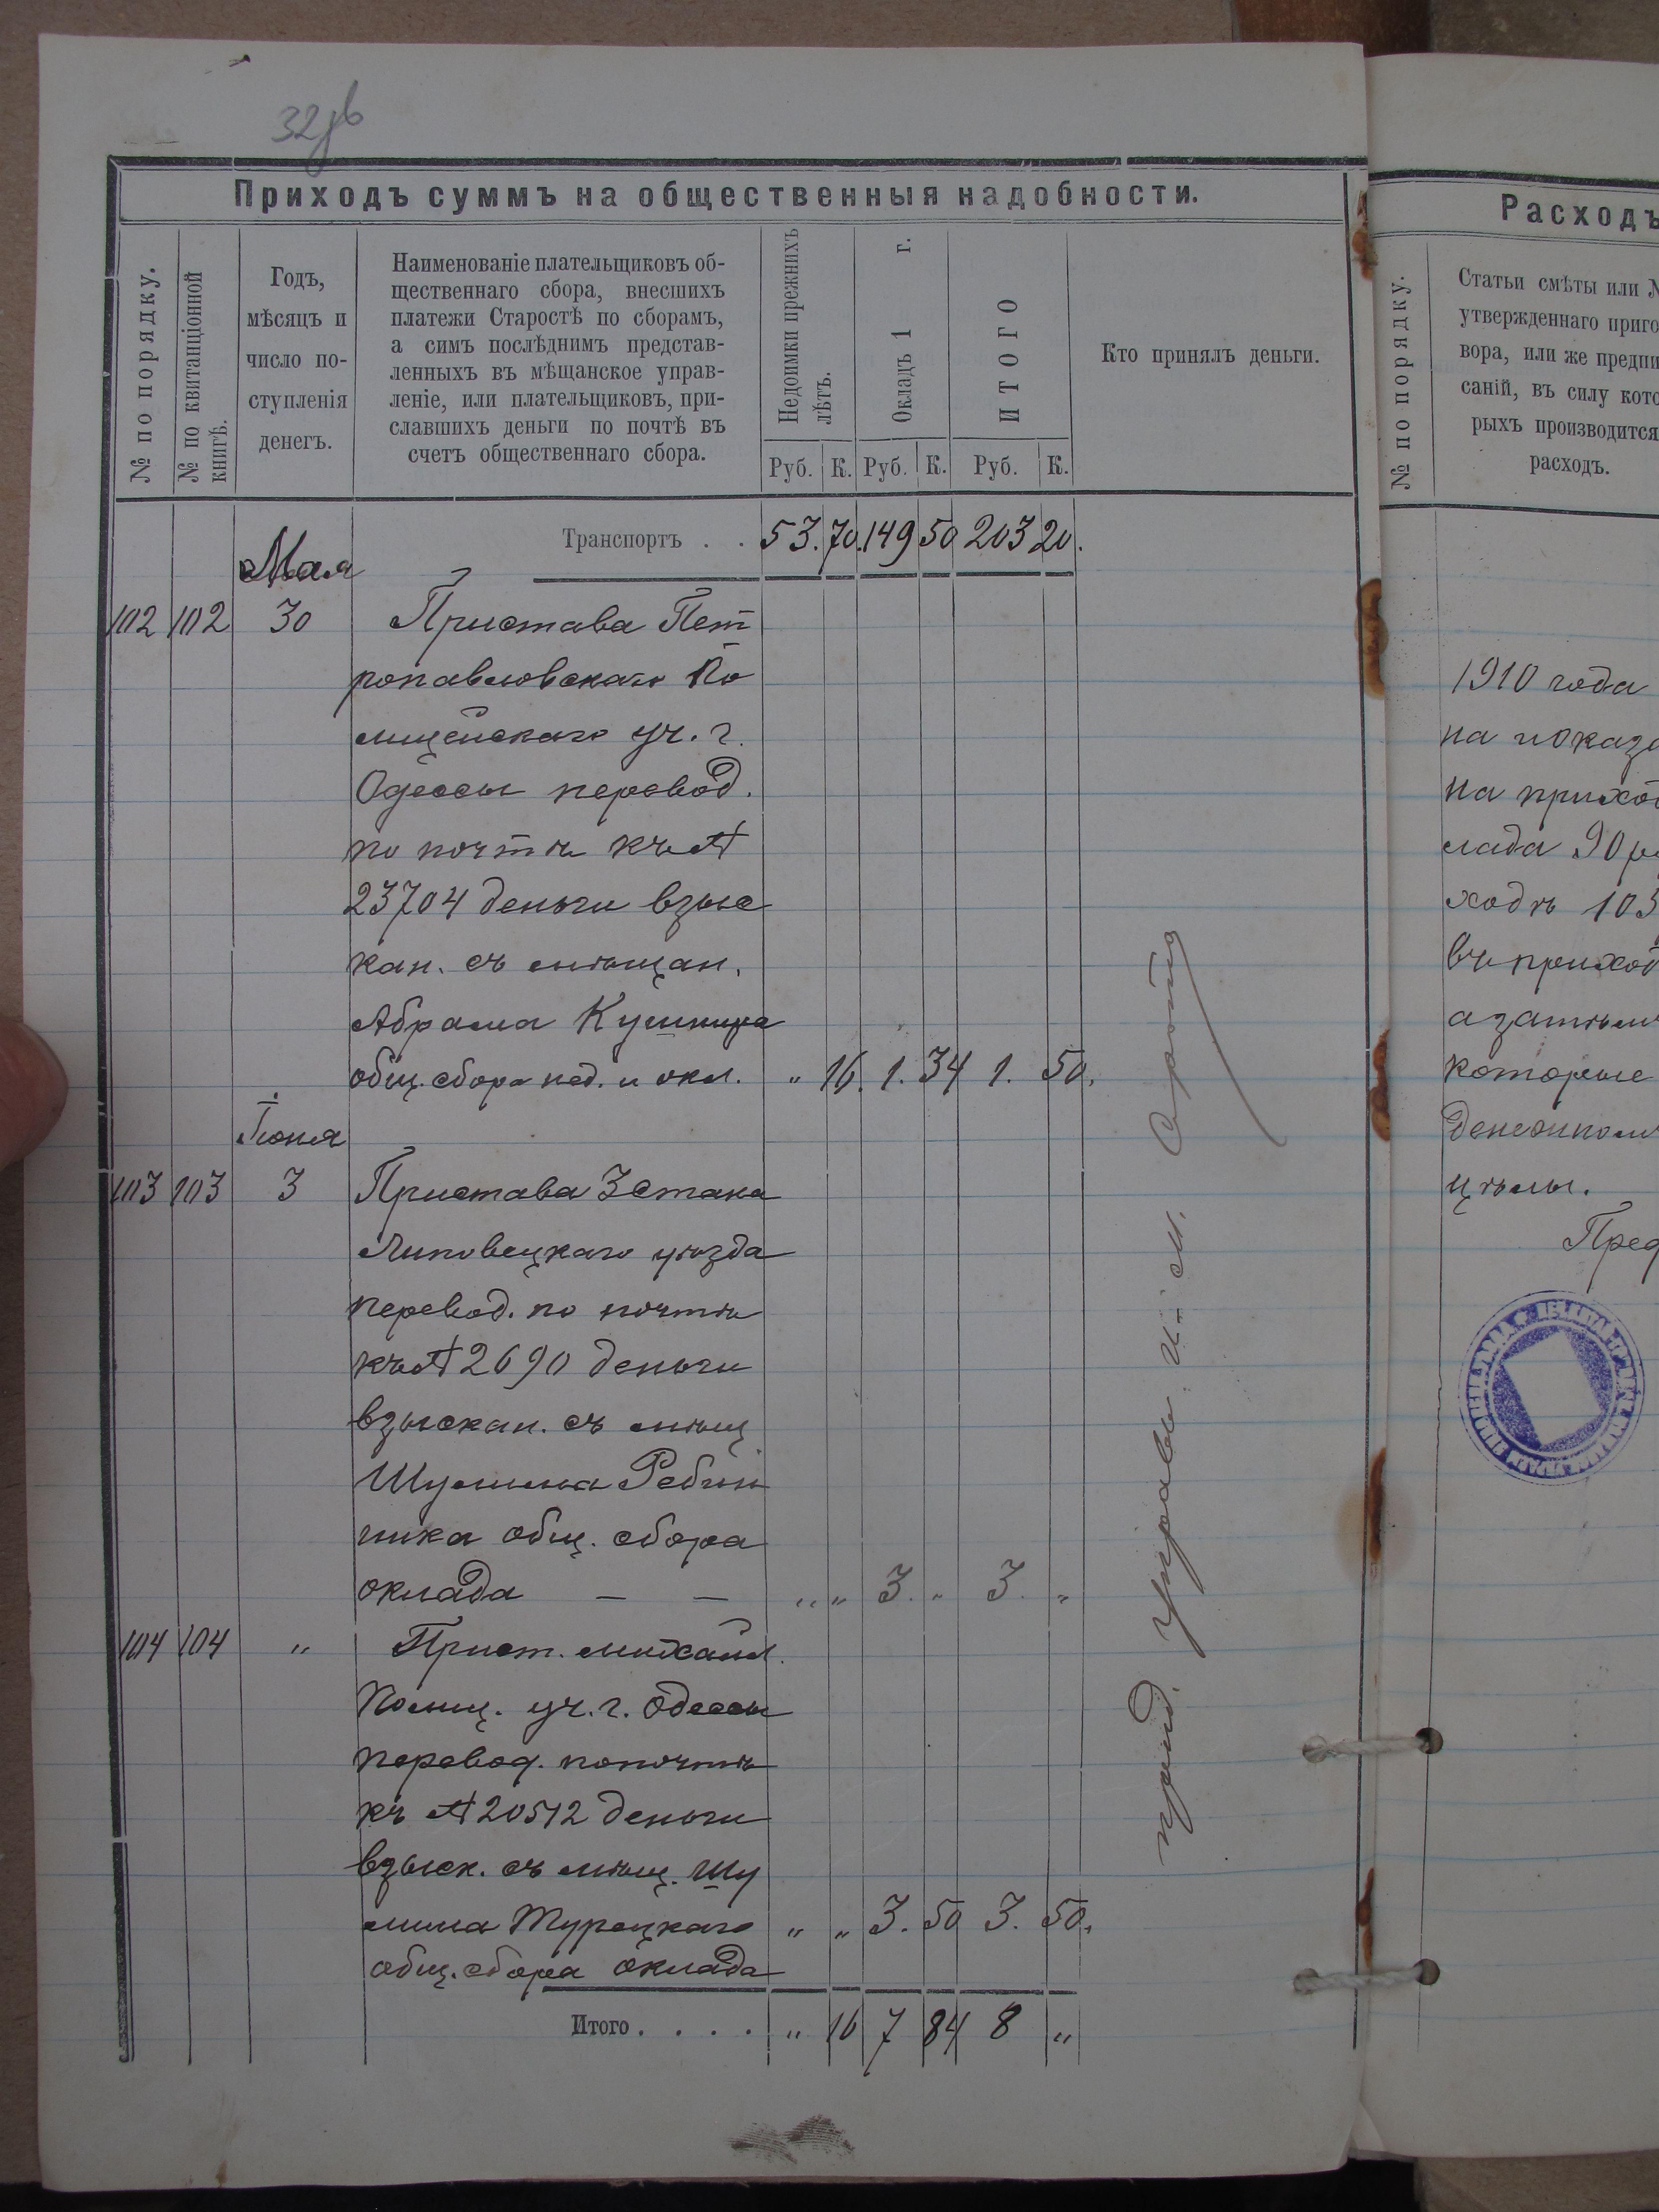 32 об
Приходъ суммъ на общественныя надобности.
№ по порядку.
№ по квитанціонной
книгѣ.
Годъ,
мѣсяцъ и
число по-
ступленія
денегъ.
Наименованіе плательщиковъ об-
щественнаго сбора, внесшихъ
платежи Старостѣ по сборамъ,
а симъ послѣднимъ представ-
ленныхъ въ мѣщанское управ-
леніе, или плательщиковъ, при-
славшихъ деньги по почтѣ въ
счетъ общественнаго сбора.
Недоимки прежнихъ
лѣтъ.
Окладъ 1 г.
ИТОГО
Кто принялъ деньги.
Руб. К. Руб. К. Руб. К.
Транспортъ . . 53. 70. 149 50 203 20.
Мая
102 102 30 Пристава Пет
ропавловскаго По
лицейскаго уч. г.
Одессы перевод.
по почтѣ къ №
23704 деньги взыс
кан. съ мѣщан.
Абрама Кушнира
общ. сбора нед. и окл. „ 16. 1. 34 1. 50.
Іюня
103 103 3 Пристава 3 стана
Липовецкаго уѣзда
перевод. по почтѣ
къ № 2690 деньги
взыскан. съ мѣщ
Шулима
ника общ. сбора
оклада — — „ „ 3. „ 3. „
104 104 „ Прист. Михайл.
Полиц. уч. г. Одессы
перевод. по почтѣ
къ № 20512 деньги
взыск. съ мѣщ. Шу
лима Турецкаго „ „ 3. 50 3. 50.
общ. сбора оклада
Итого . . . . „ 16 7 84 8 „
управы
Расходъ
№ по порядку.
Статьи смѣты или №
утвержденнаго приго
вора, или же предпи
саній, въ силу кото
рыхъ производится
расходъ.
1910 года
на показа
на приход
лада 90 ру
ходъ 103
въ приход
а затѣм
которые
денежном
цѣлы.
Пред